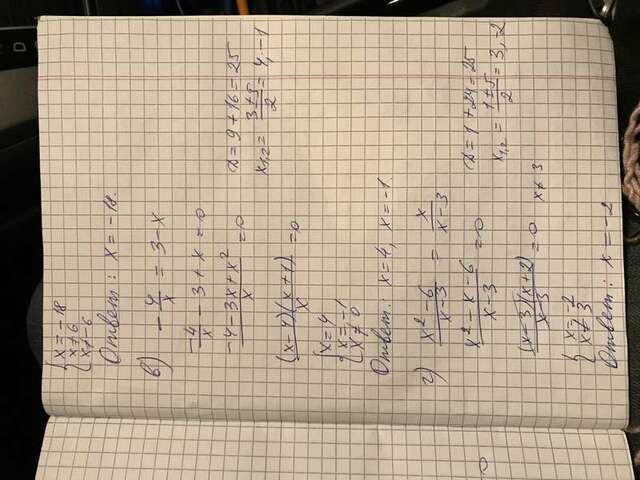 { x = -18
x ≠ 6
x ≠ -6
Ответ: x = -18.
в) -4/x = 3 - x
-4/x - 3 + x = 0
(-4 - 3x + x²)/x = 0
D = 9 + 16 = 25
x₁,₂ = (3 ± 5)/2 = 4, -1
(x-4)(x+1)/x = 0
{ x = 4
x = -1
x ≠ 0
Ответ: x = 4, x = -1
г) (x² - 6)/(x - 3) = x/(x - 3)
(x² - x - 6)/(x - 3) = 0
D = 1 + 24 = 25
x₁,₂ = (1 ± 5)/2 = 3, -2
(x-3)(x+2)/(x-3) = 0 x ≠ 3
{ x = -2
x ≠ 3
Ответ: x = -2
D